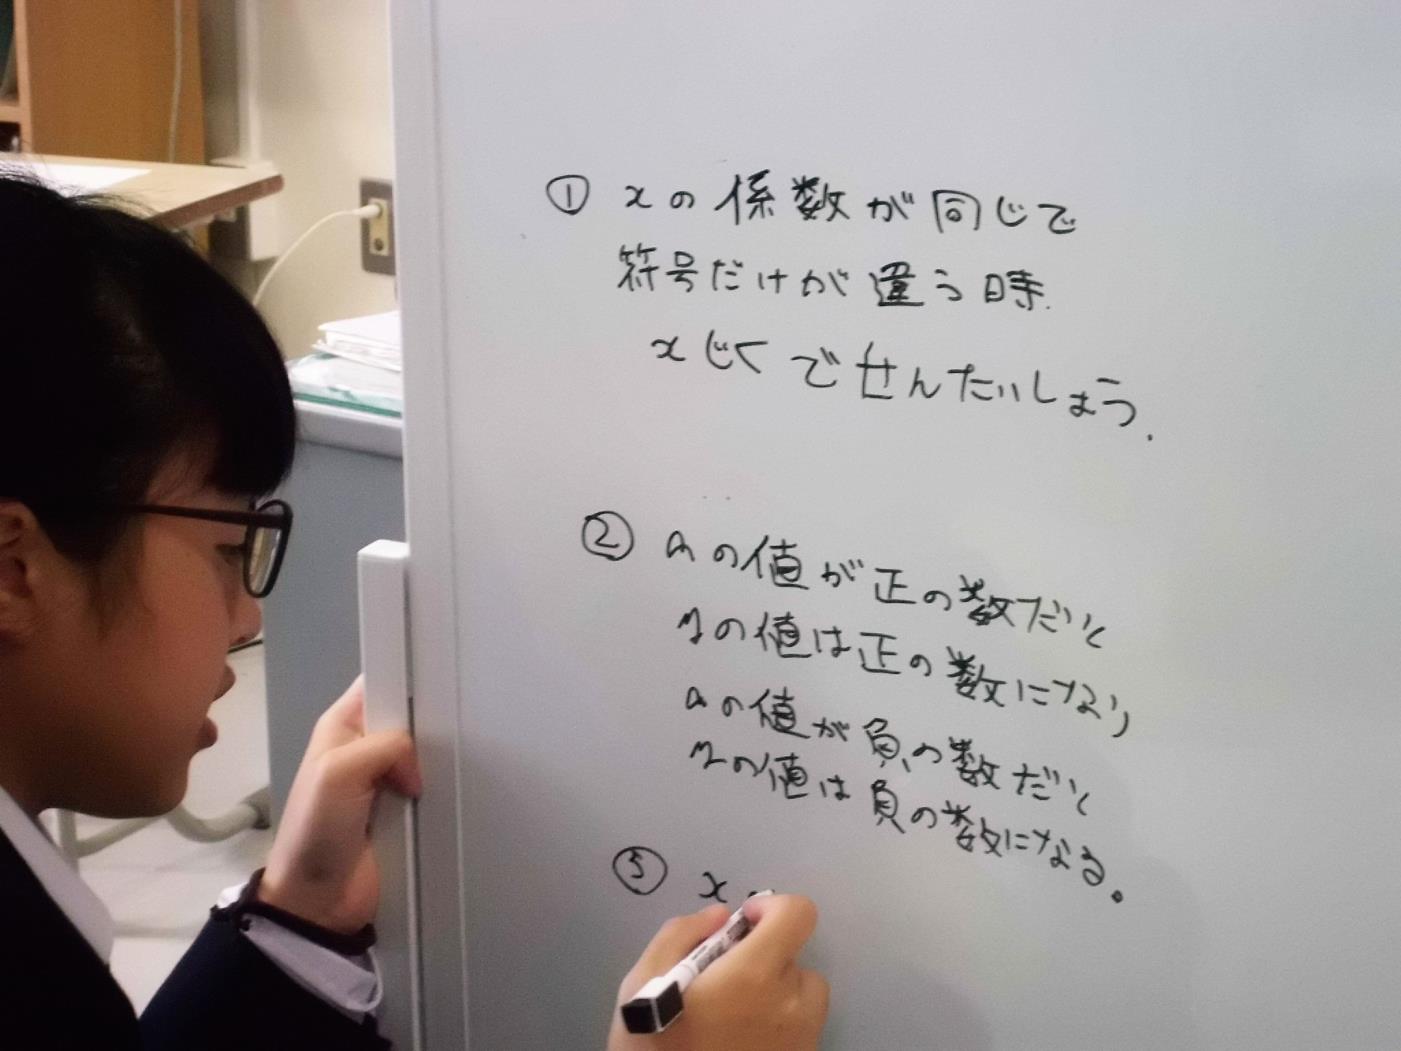 ① xの係数が同じで
符号だけが違う時
xじくでせんたいしょう.
② aの値が正の数だと
yの値は正の数になり
aの値が負の数だと
yの値は負の数になる。
③ x